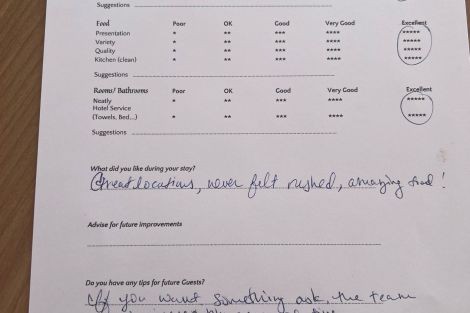 Suggestions
Food Poor OK Good Very Good Excellent
Presentation * ** *** **** *****
Variety * ** *** **** *****
Quality * ** *** **** *****
Kitchen (clean) * ** *** **** *****
Suggestions
Rooms/ Bathrooms Poor OK Good Very Good Excellent
Neatly * ** *** **** *****
Hotel Service
(Towels, Bed...) * ** *** **** *****
Suggestions
What did you like during your stay?
Great locations, never felt rushed, amazing food!
Advise for future improvements
Do you have any tips for future Guests?
If you want something ask, the team